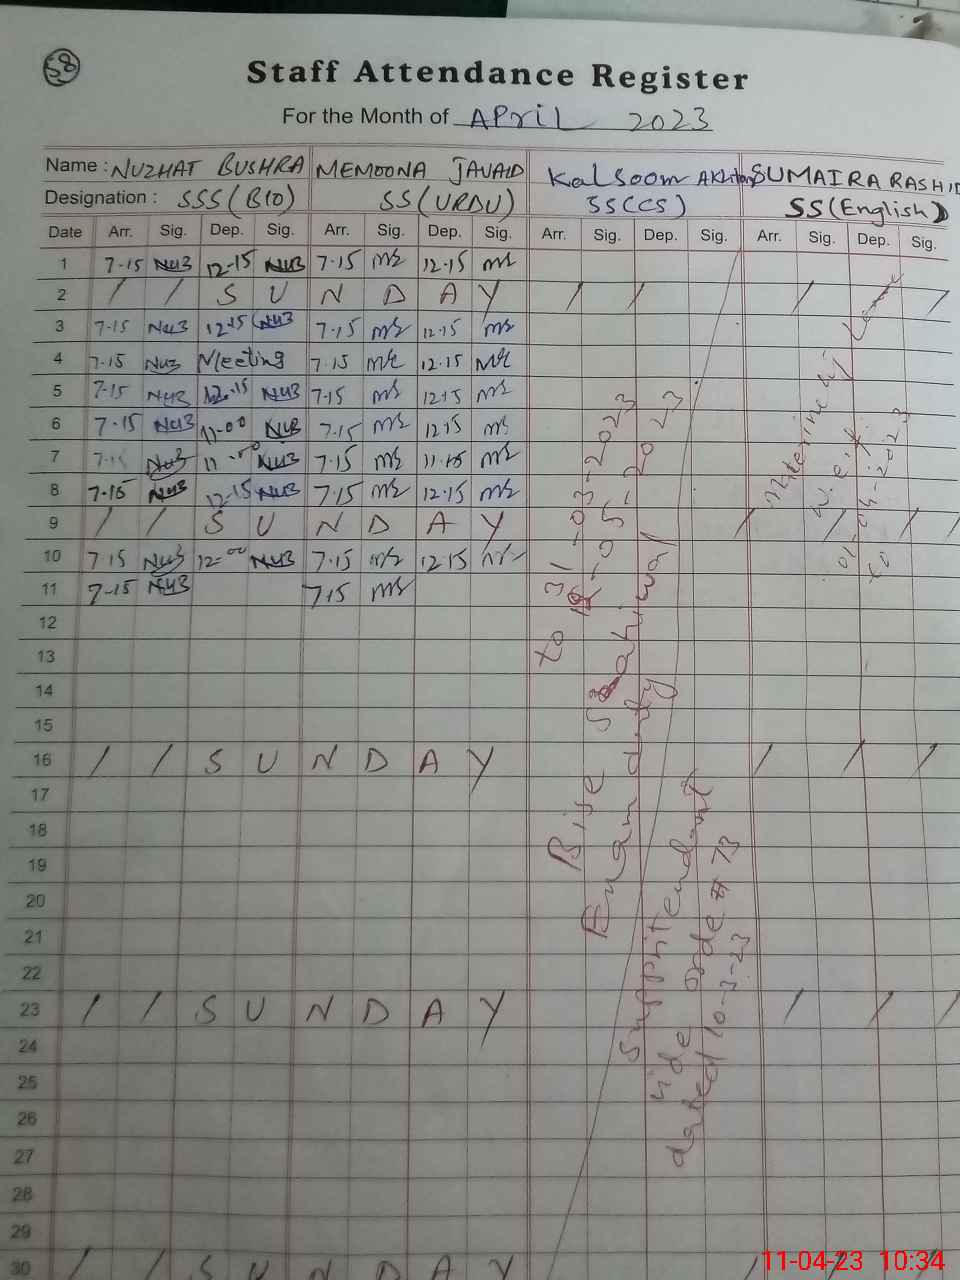 58
Staff Attendance Register
For the Month of APriL 2023
Name : NUZHAT BUSHRA MEMOONA JAVAID Kalsoom Akhtar SUMAIRA RASHID
Designation : SSS (BIO) SS (URDU) SS (CS) SS (English)
Date Arr. Sig. Dep. Sig. Arr. Sig. Dep. Sig. Arr. Sig. Dep. Sig. Arr. Sig. Dep. Sig.
1 7-15 NuB 12-15 NuB 7-15 ms 12-15 ms
2 / / S U N D A Y / / / /
3 7-15 NuB 12-15 NuB 7-15 ms 12-15 ms
4 7-15 NuB Meeting 7-15 ms 12-15 ms
5 7-15 NuB 12-15 NuB 7-15 ms 12-15 ms
6 7-15 NuB 11-00 NuB 7-15 ms 12-15 ms
7 7-15 NuB 11-00 NuB 7-15 ms 11-15 ms
8 7-15 NuB 12-15 NuB 7-15 ms 12-15 ms
9 / / S U N D A Y / / / /
10 7-15 NuB 12-00 NuB 7-15 ms 12-15 ms
11 7-15 NuB 7-15 ms
12
13
14
15
16 / / S U N D A Y / / /
17
18
19
20
21
22
23 / / S U N D A Y / / /
24
25
26
27
28
29
30 / / S U N D A Y / /
31-03-2023
to -05-2023
Bise Sahiwal
Exam duty
Suppritendant
vide orde # 73
dated 10-3-23
w.e.f.
01-04-2023
to
11-04-23 10:34